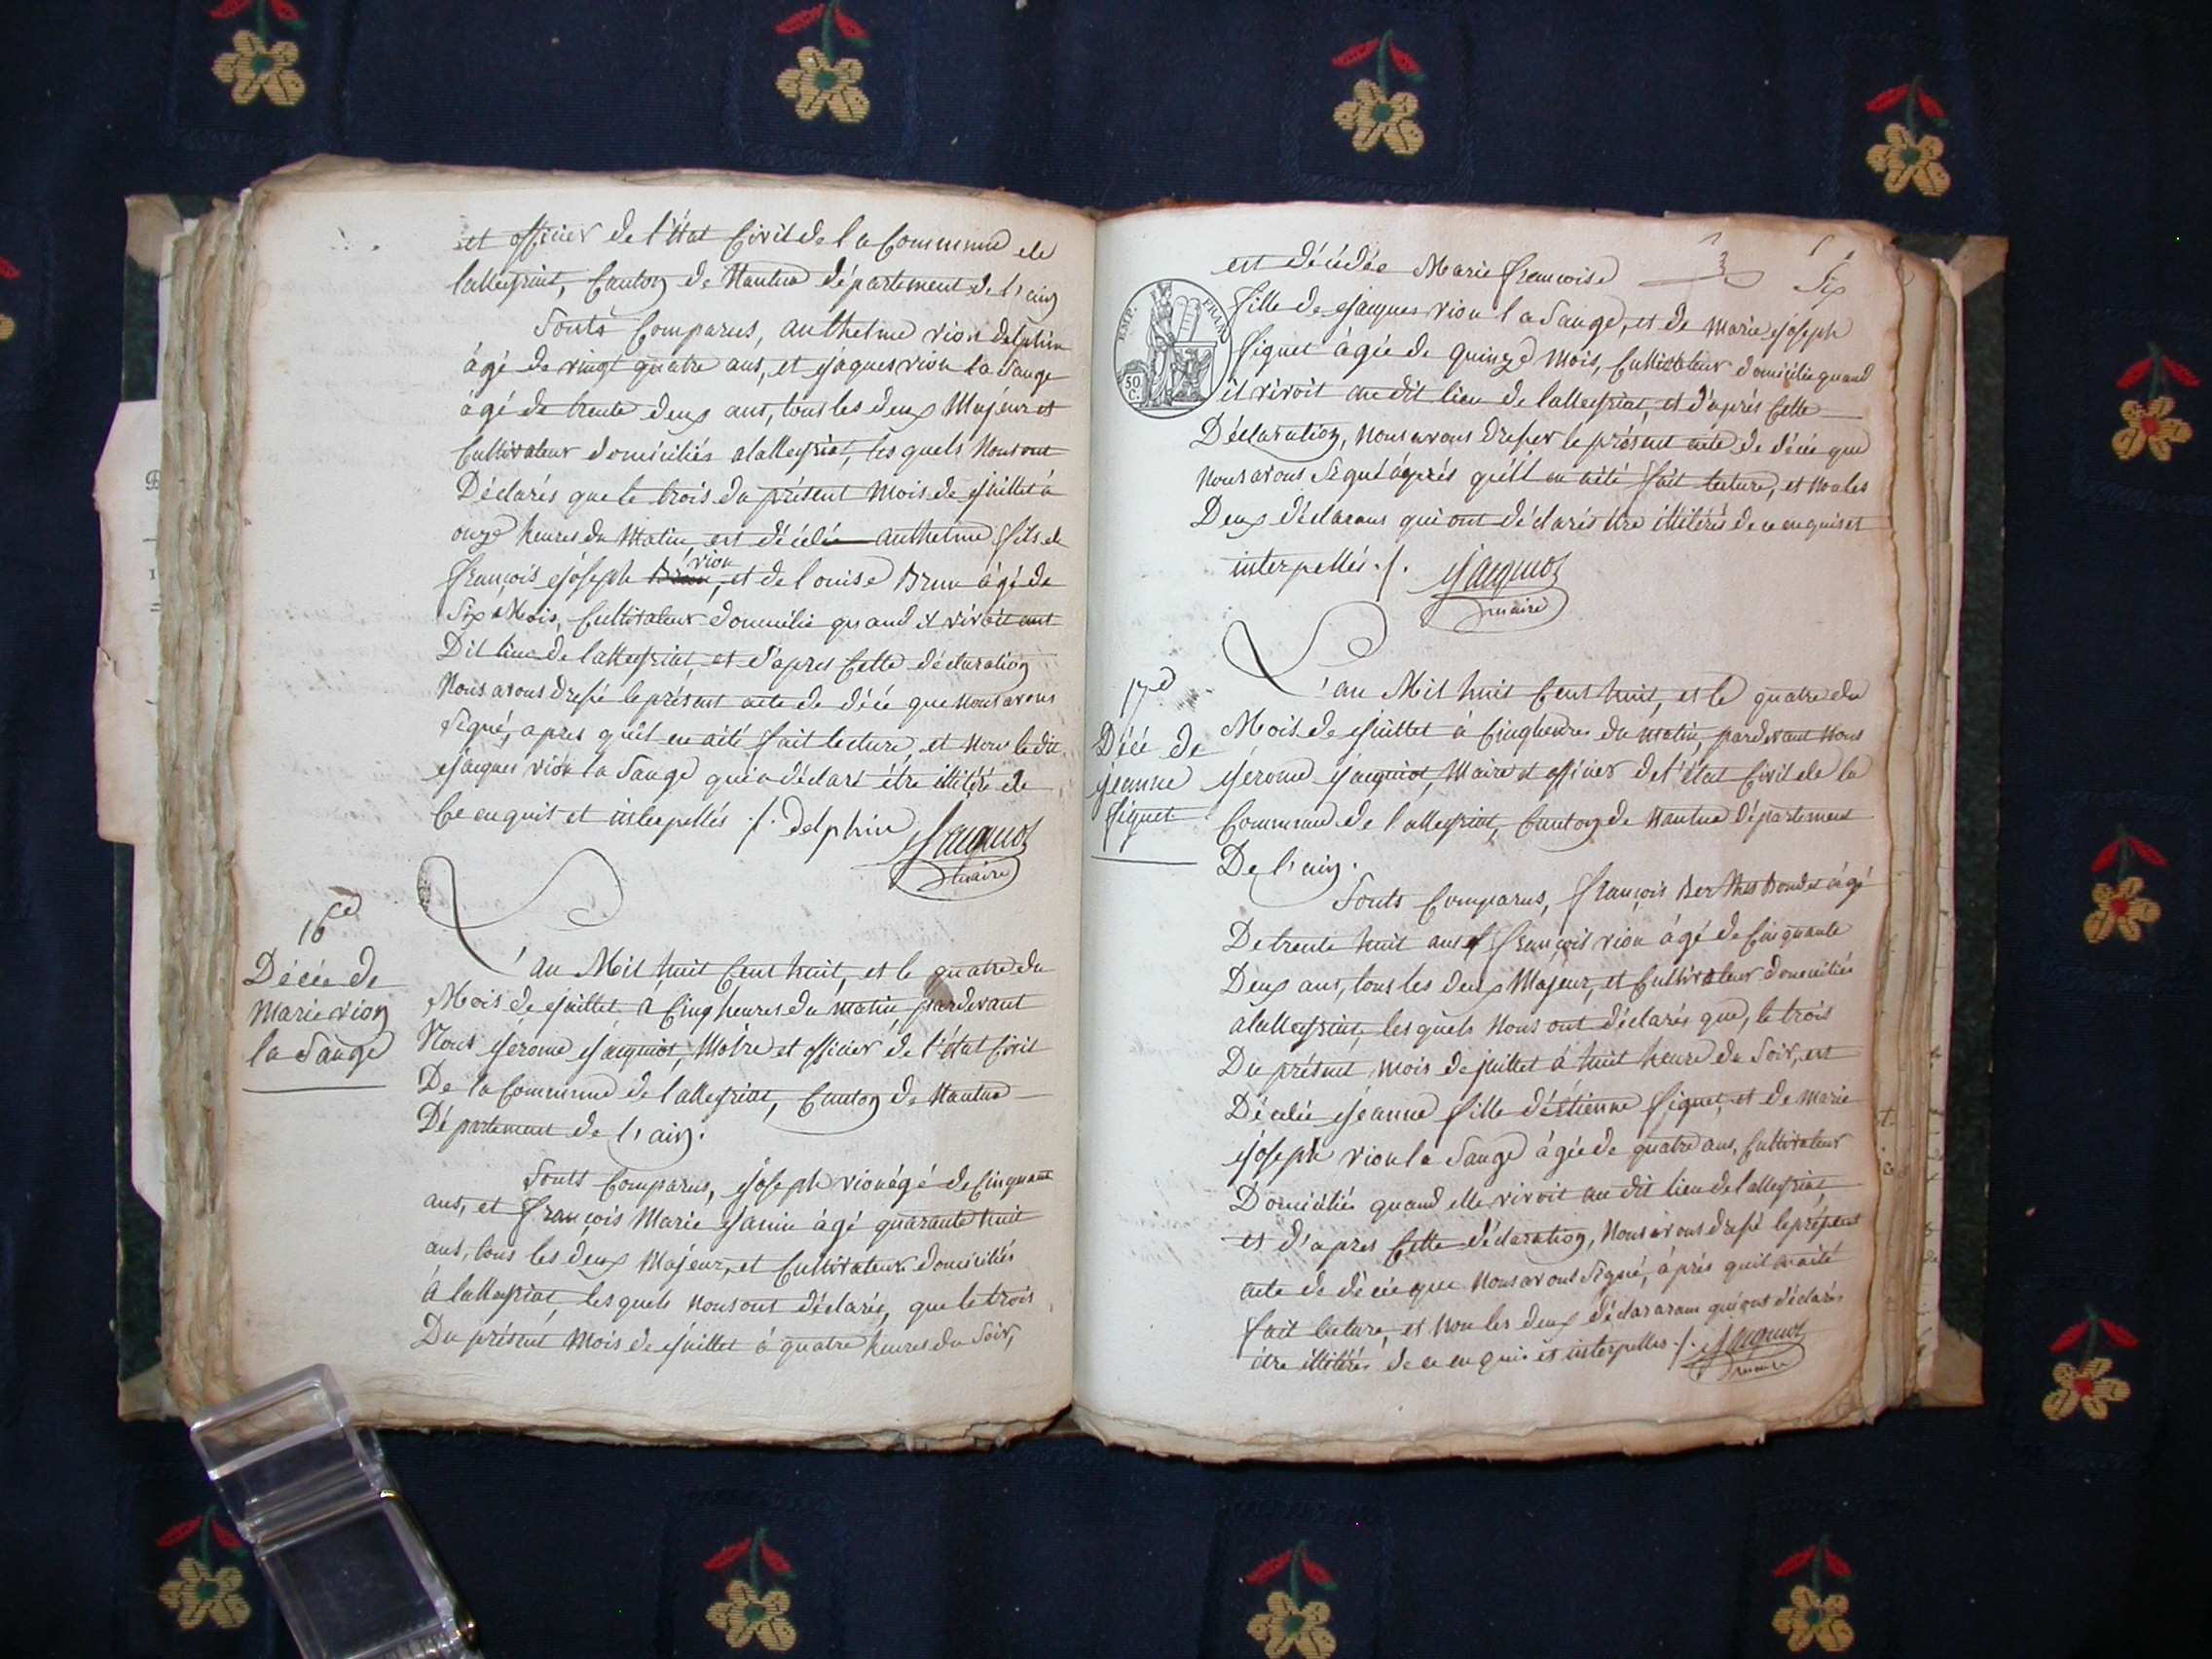 et officier de l'état Civil de la Commune de
lalleyriat, Canton de Nantua département de l'ain
Sonts Comparus, anthelme vion delphin
âgé de vingt quatre ans, et jaques vion la Sauge
âgé de trente deux ans, tous les deux Majeur et
Cultivateur domiciliés alalleyriat, les quels Nous ont
Déclarés que le trois du présent Mois de juillet à
onze heures du Matin, est décédé anthelme fils de
vion
françois joseph et de louise Brun âgé de
Six Mois, Cultivateur domicilié quand il vivoit aut
Dit lieu de lalleyriat, et d'apres Cette déclaration
Nous avons dressé le présent acte de décé que nous avons
Signé, apres quil en aité fait lecture, et Nons le dit
jacques vion la Sauge qui a déclaré être illitéré de
Ce enquit et interpellés ./. delphin Jacquiot
maire
16e
Décée de
Marie vion
la Sauge
L'an Mil huit Cent huit, et le quatre du
Mois de juillet a Cinq heures du matin, pardevant
Nous jérome jacquiot, Maire et officier de l'état Civil
De la Commune de lalleyriat, Canton de Nantua
Département de l'ain.
Sonts Comparus, joseph vion âgé de Cinquante
ans, et françois Marie janin âgé quarante huit
ans, tous les deux Majeur, et Cultivateur domiciliés
à lalleyriat, les quels nous ont déclarés, que le trois
Du présent Mois de juillet à quatre heures du Soir,
Six
est décédée Marie françoise
EMP. FRAN.
50
C.
fille de jacques vion la Sauge, et de marie joseph
figuet âgée de quinze Mois, Cultivateur domiciliée quand
il vivoit au dit lieu de lalleyriat, et d'aprés Cette
Déclaration, Nous avons dresser le présent acte de décée que
Nous avons Signé àprés qu'il en aité fait lecture, et non les
Deux déclarans qui ont déclarés être illitérés de ce enquis et
interpellés ./. Jacquiot
maire
17e
Décé de
jeanne
figuet
L'an Mil huit Cent huit, et le quatre du
Mois de juillet à Cinq heures du matin, pardevant Nous
jérome jacquiot, Maire et officier de l'état Civil de la
Commune de lalleyriat, Canton de Nantua Département
De l'ain.
Sonts Comparus, françois âgé
De trente huit ans et françois vion âgé de Cinquante
Deux ans, tous les deux Majeur, et Cultivateur domiciliés
alalleyriat, les quels Nous ont déclarés que, le trois
Du présent mois de juillet à huit heure du Soir, est
Décédée jeanne fille d'étienne figuet, et de marie
joseph vion la Sauge âgée de quatre ans, Cultivateur
Domiciliée quand elle vivoit au dit lieu de lalleyriat
et d'apres Cette déclaration, Nous avons dressé le présent
acte de décée que Nous avons Signé, àprés quil en aité
fait lecture, et Non les deux déclararans qui ont déclarés
être illitérés de ce en quis et interpellés ./. Jacquiot
maire